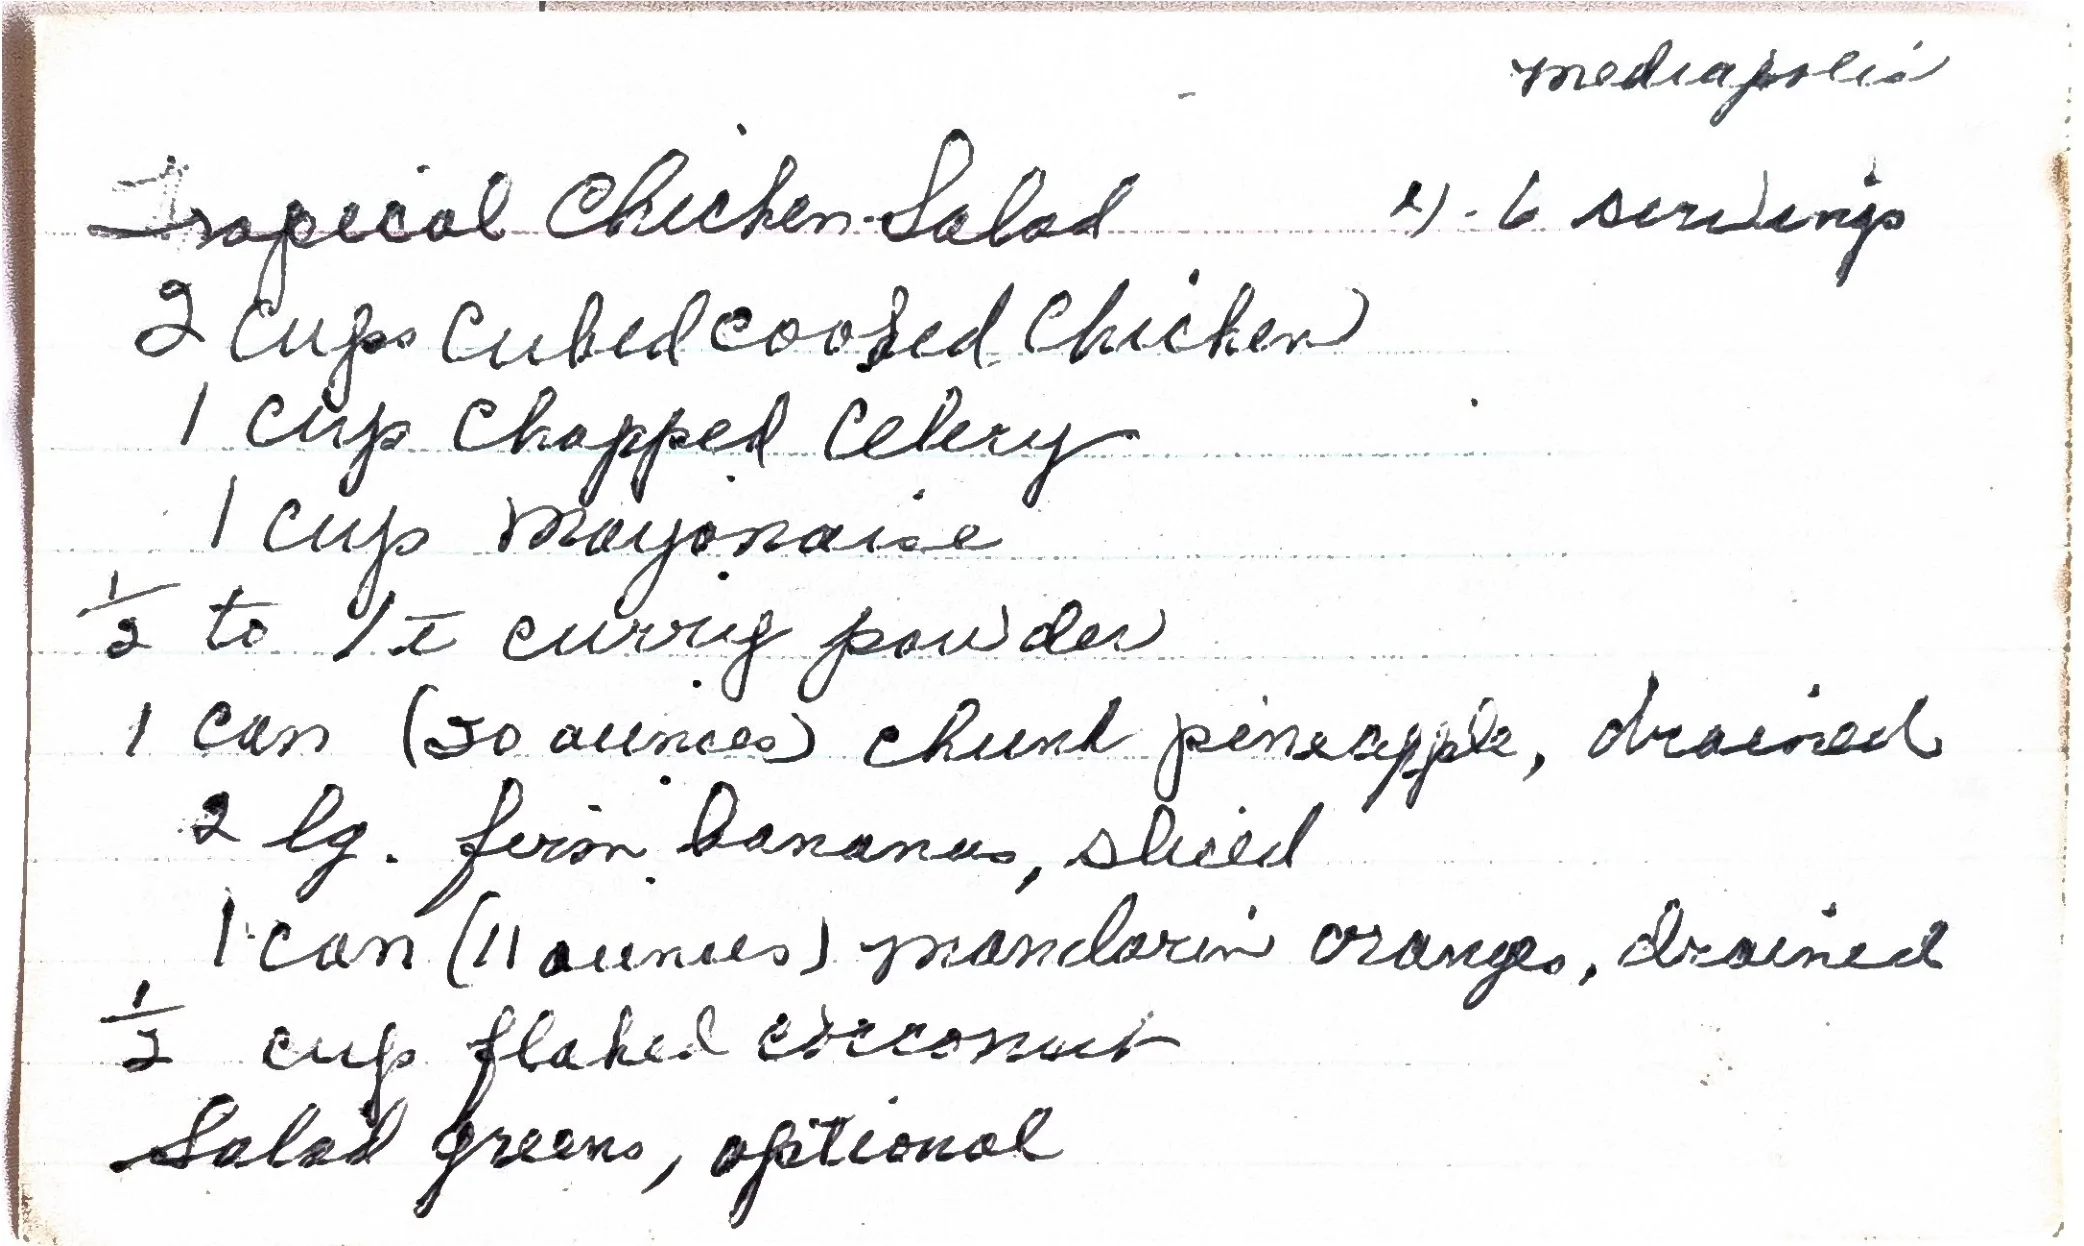 Mediapolis
Tropical Chicken Salad 4-6 servings
2 cups cubed cooked chicken
1 cup chopped celery
1 cup mayonaise
1/2 to 1 t curry powder
1 can (20 ounces) chunk pineapple, drained
2 lg. firm bananas, sliced
1 can (11 ounces) mandarin oranges, drained
1/2 cup flaked coconut
Salad greens, optional